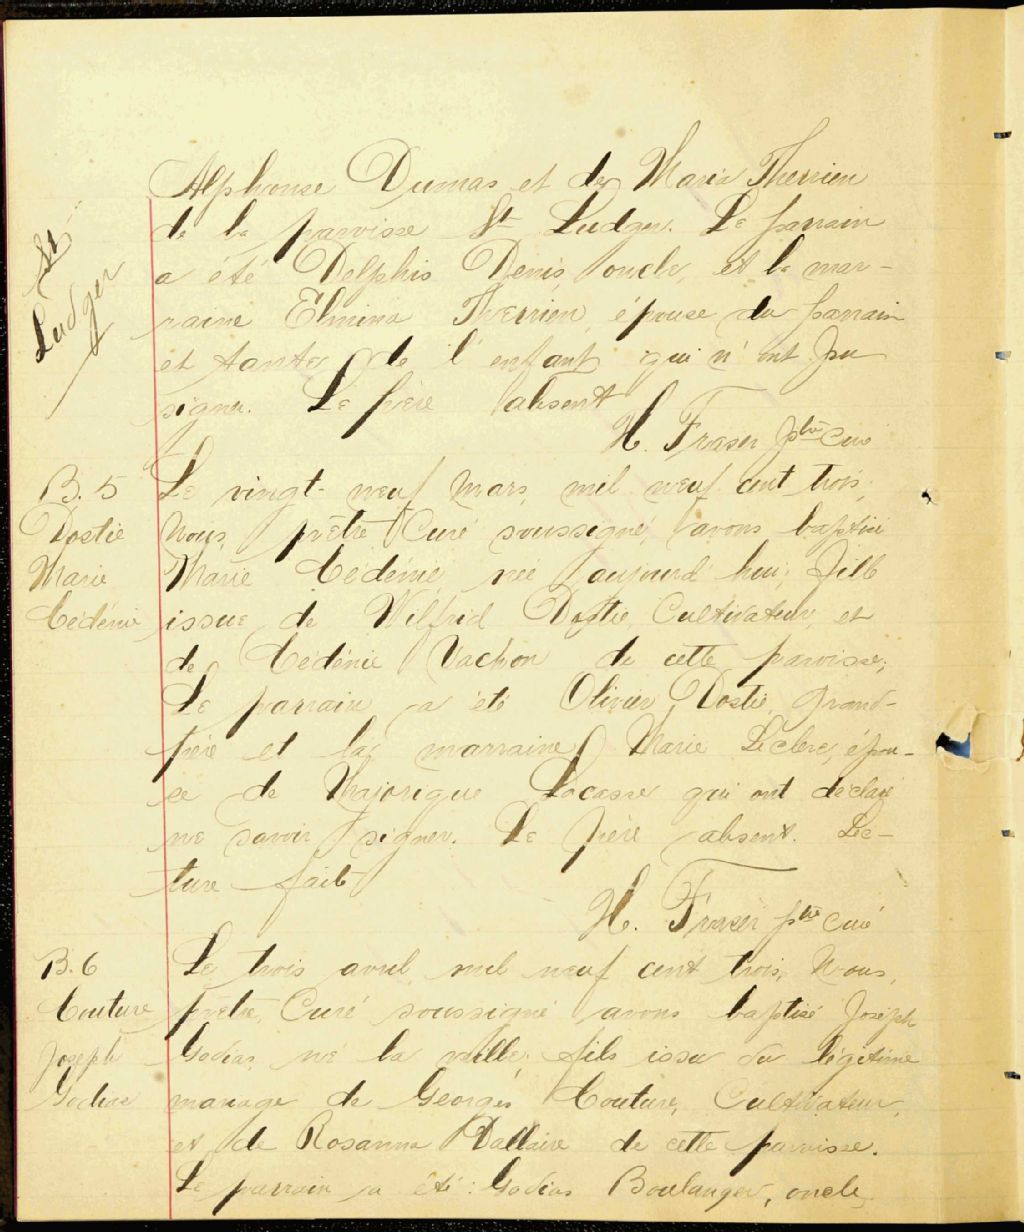 Alphonse Dumas et de Maria Therrien
de la paroisse St Ludger. Le parrain
a été Delphis Denis, oncle, et la mar-
raine Elmina Therrien, épouse du parrain
et tante de l'enfant qui n'ont pu
signer. Le père absent
H. Fraser ptre curé
St
Ludger
B. 5
Dostie
Marie
Cédénie
Le vingt-neuf Mars, mil neuf cent trois,
Nous, prêtre Curé soussigné, avons baptisé
Marie Cédénie, née aujourd'hui, fille
issue de Wilfrid Dostie, Cultivateur, et
de Cédénie Vachon de cette paroisse;
Le parrain a été Olivier Dostie, grand-
père et la marraine Marie Leclerc, épou-
se de Majorique Lacasse qui ont déclaré
ne savoir signer. Le père absent. Lec-
ture faite
H. Fraser ptre curé
B. 6
Couture
Joseph
Godias
Le trois avril mil neuf cent trois, Nous,
prêtre, Curé soussigné avons baptisé Joseph
Godias, né la veille; fils issu du légitime
mariage de Georges Couture, Cultivateur,
et de Rosanna Dallaire de cette paroisse.
Le parrain a été: Godias Boulanger, oncle,